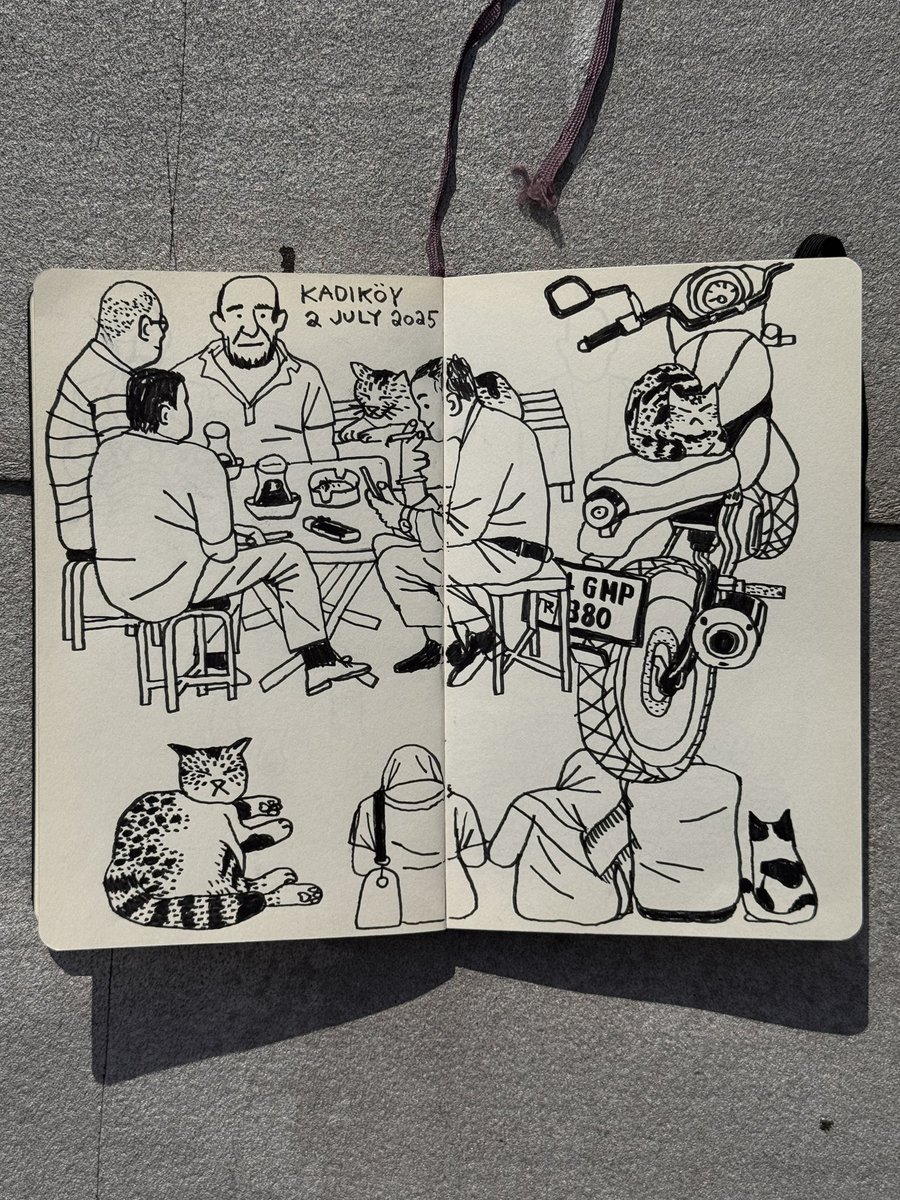 KADIKÖY
2 JULY 2025
GMP
TR 380